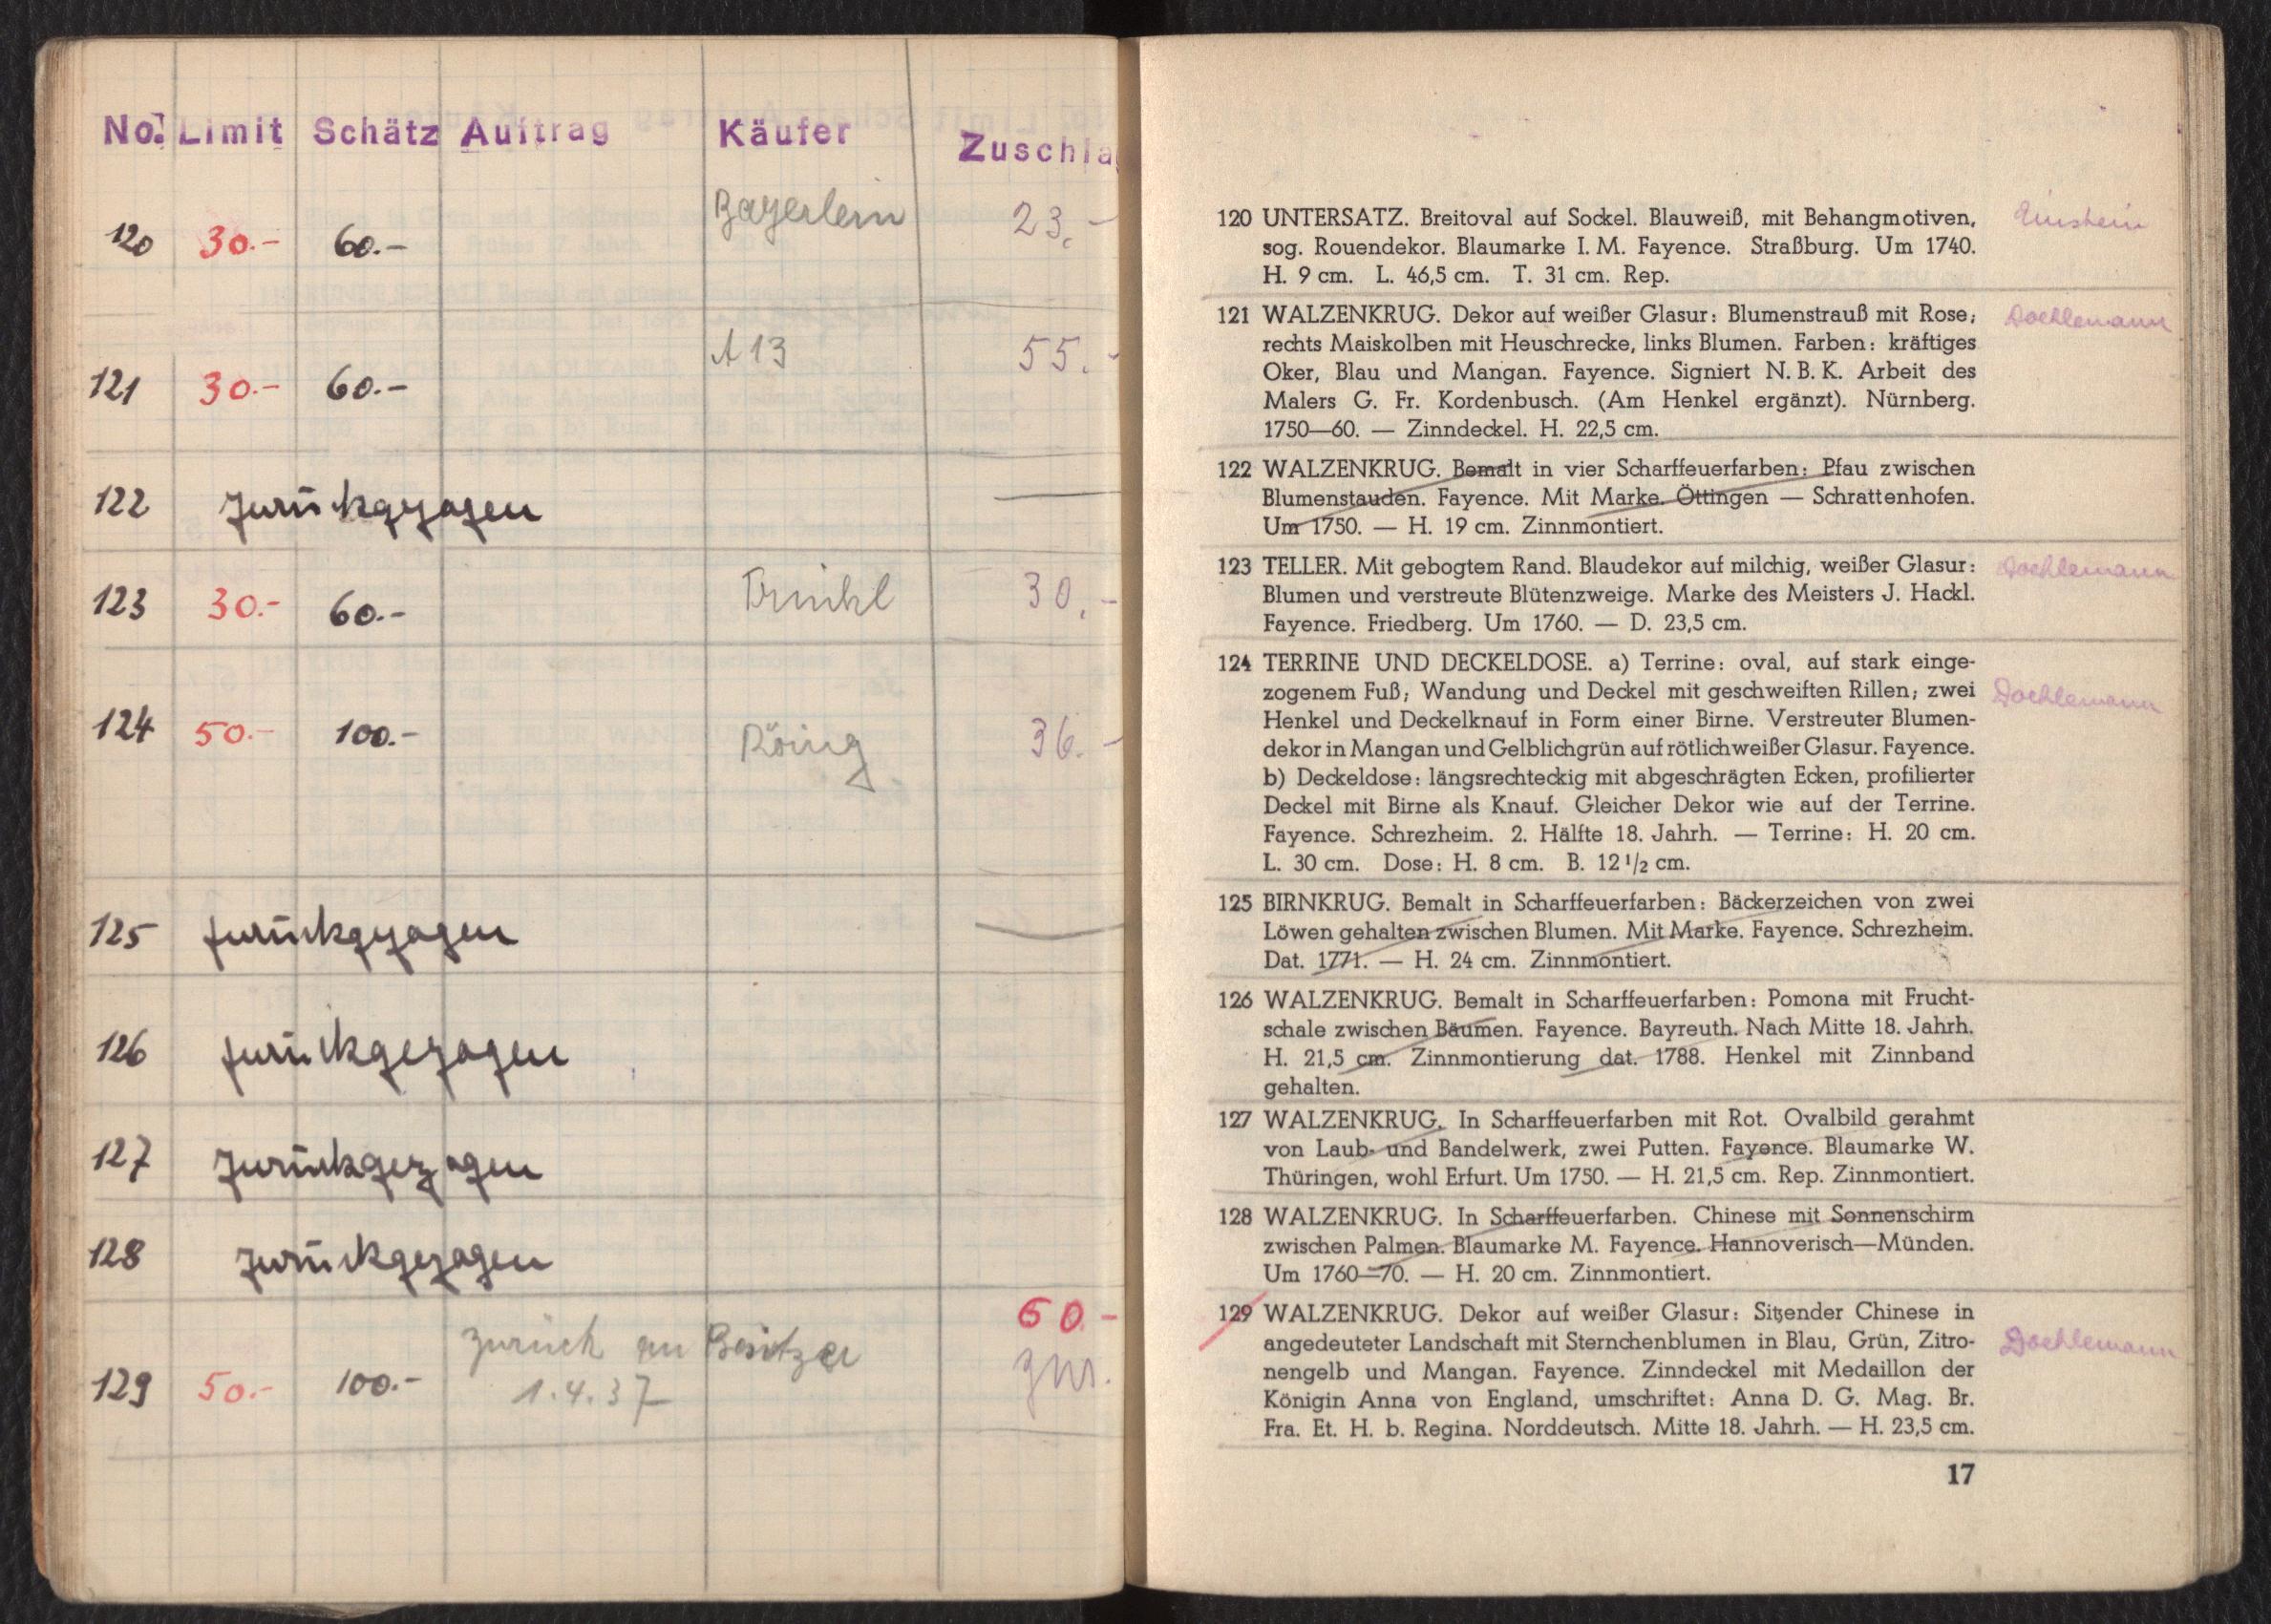 No. Limit Schätz Auftrag Käufer Zuschla
120 30.- 60.- Bayerlein 23.-
121 30.- 60.- A 13 55.-
122 zurückgezogen
123 30.- 60.- 30.-
124 50.- 100.- Röing 36.-
125 zurückgezogen
126 zurückgezogen
127 zurückgezogen
128 zurückgezogen
60.-
zurück an Besitzer
129 50.- 100.- 1.4.37 zur.
120 UNTERSATZ. Breitoval auf Sockel. Blauweiß, mit Behangmotiven, Einstein
sog. Rouendekor. Blaumarke I. M. Fayence. Straßburg. Um 1740.
H. 9 cm. L. 46,5 cm. T. 31 cm. Rep.
121 WALZENKRUG. Dekor auf weißer Glasur: Blumenstrauß mit Rose; Doehlemann
rechts Maiskolben mit Heuschrecke, links Blumen. Farben: kräftiges
Oker, Blau und Mangan. Fayence. Signiert N. B. K. Arbeit des
Malers G. Fr. Kordenbusch. (Am Henkel ergänzt). Nürnberg.
1750—60. — Zinndeckel. H. 22,5 cm.
122 WALZENKRUG. Bemalt in vier Scharffeuerfarben: Pfau zwischen
Blumenstauden. Fayence. Mit Marke. Öttingen — Schrattenhofen.
Um 1750. — H. 19 cm. Zinnmontiert.
123 TELLER. Mit gebogtem Rand. Blaudekor auf milchig, weißer Glasur: Doehlemann
Blumen und verstreute Blütenzweige. Marke des Meisters J. Hackl.
Fayence. Friedberg. Um 1760. — D. 23,5 cm.
124 TERRINE UND DECKELDOSE. a) Terrine: oval, auf stark einge-
zogenem Fuß; Wandung und Deckel mit geschweiften Rillen; zwei Doehlemann
Henkel und Deckelknauf in Form einer Birne. Verstreuter Blumen-
dekor in Mangan und Gelblichgrün auf rötlichweißer Glasur. Fayence.
b) Deckeldose: längsrechteckig mit abgeschrägten Ecken, profilierter
Deckel mit Birne als Knauf. Gleicher Dekor wie auf der Terrine.
Fayence. Schrezheim. 2. Hälfte 18. Jahrh. — Terrine: H. 20 cm.
L. 30 cm. Dose: H. 8 cm. B. 12 1/2 cm.
125 BIRNKRUG. Bemalt in Scharffeuerfarben: Bäckerzeichen von zwei
Löwen gehalten zwischen Blumen. Mit Marke. Fayence. Schrezheim.
Dat. 1771. — H. 24 cm. Zinnmontiert.
126 WALZENKRUG. Bemalt in Scharffeuerfarben: Pomona mit Frucht-
schale zwischen Bäumen. Fayence. Bayreuth. Nach Mitte 18. Jahrh.
H. 21,5 cm. Zinnmontierung dat. 1788. Henkel mit Zinnband
gehalten.
127 WALZENKRUG. In Scharffeuerfarben mit Rot. Ovalbild gerahmt
von Laub- und Bandelwerk, zwei Putten. Fayence. Blaumarke W.
Thüringen, wohl Erfurt. Um 1750. — H. 21,5 cm. Rep. Zinnmontiert.
128 WALZENKRUG. In Scharffeuerfarben. Chinese mit Sonnenschirm
zwischen Palmen. Blaumarke M. Fayence. Hannoverisch—Münden.
Um 1760—70. — H. 20 cm. Zinnmontiert.
129 WALZENKRUG. Dekor auf weißer Glasur: Sitzender Chinese in
angedeuteter Landschaft mit Sternchenblumen in Blau, Grün, Zitro- Doehlemann
nengelb und Mangan. Fayence. Zinndeckel mit Medaillon der
Königin Anna von England, umschriftet: Anna D. G. Mag. Br.
Fra. Et. H. b. Regina. Norddeutsch. Mitte 18. Jahrh. — H. 23,5 cm.
17